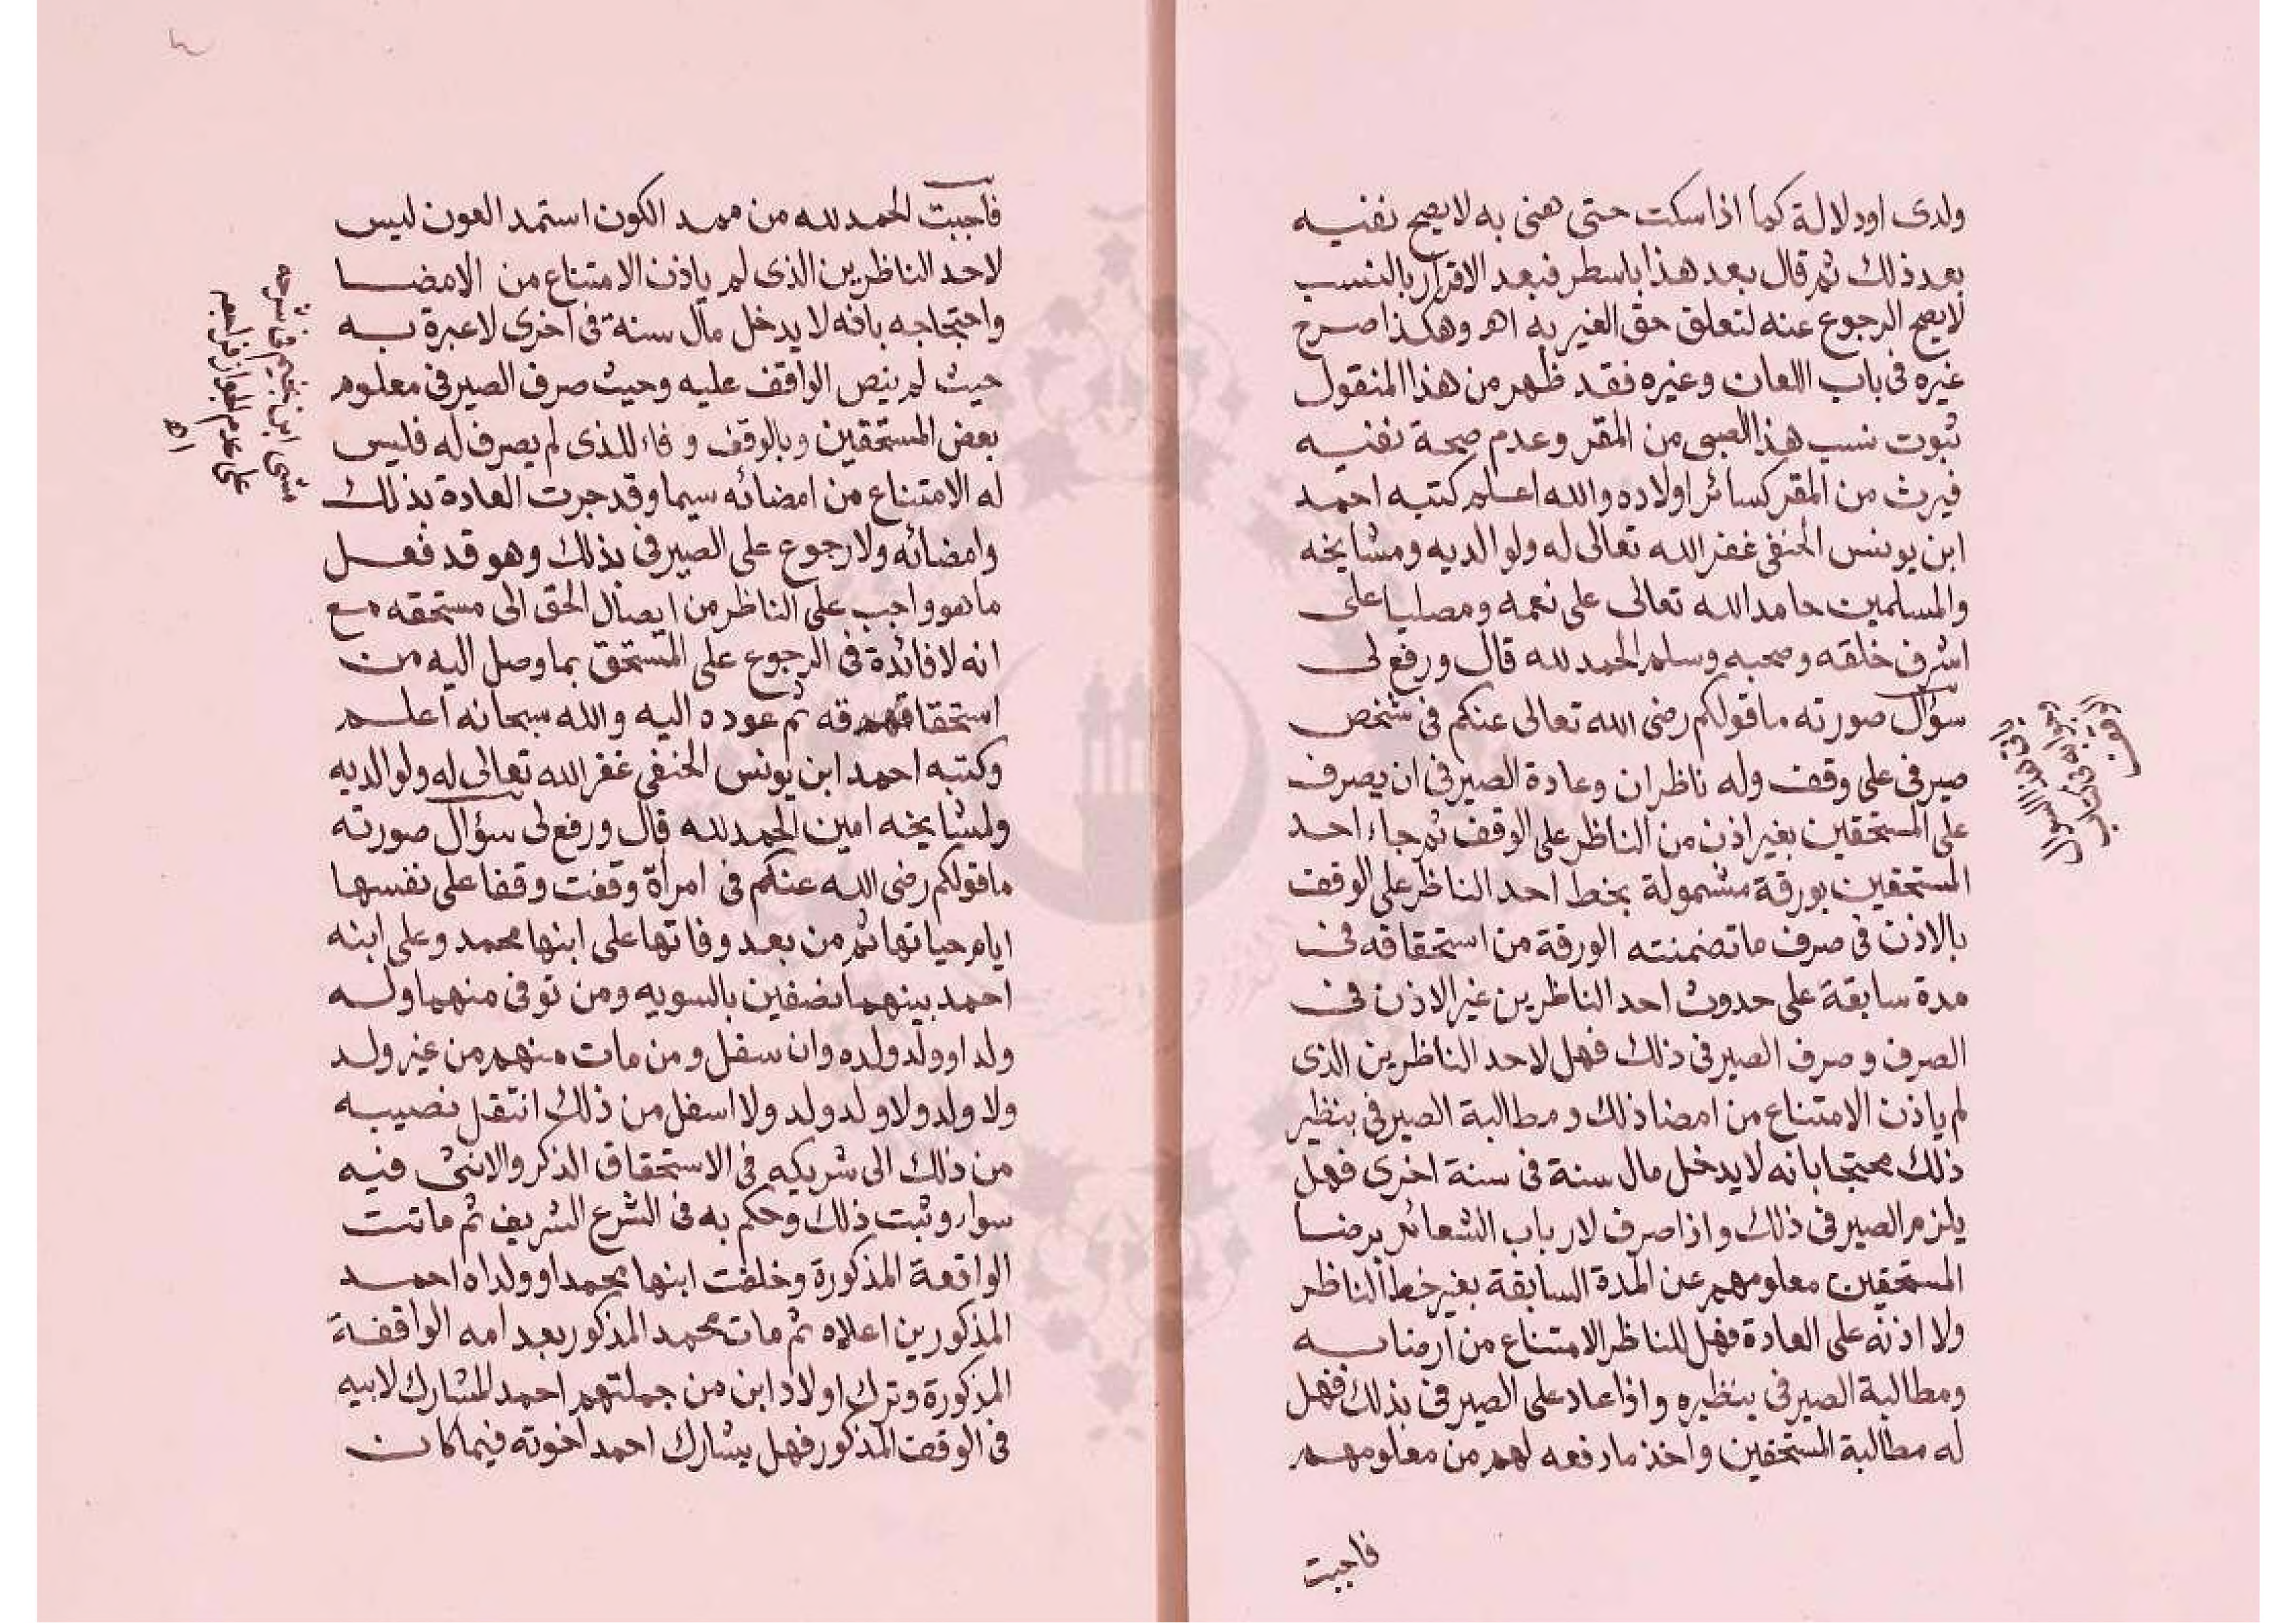 ولدى اودلالة كما اذا سكت حتى هنى به لا يصح نفيه
بعد ذلك ثم قال بعد هذا باسطر فبعد الاقرار بالنسب
لا يصح الرجوع عنه لتعلق حق الغير به اهـ وهكذا صرح
غيره فى باب اللعان وغيره فقد ظهر من هذا المنقول
ثبوت نسب هذا الصبى من المقر وعدم صحة نفيه
فيرث من المقر كسائر اولاده والله اعلم كتبه احمد
ابن يونس الحنفى غفر الله تعالى له ولوالديه ومشايخه
والمسلمين حامد الله تعالى على نعمه ومصليا على
اشرف خلقه وصحبه وسلم الحمد لله قال ورفع لى
سؤال صورته ما قولكم رضى الله تعالى عنكم فى شخص
صيرفى على وقف وله ناظران وعادة الصيرفى ان يصرف
على المستحقين بغير اذن من الناظر على الوقف ثم جاء احد
المستحقين بورقة مشمولة بخط احد الناظر على الوقف
بالاذن فى صرف ما تضمنته الورقة من استحقاقه فى
مدة سابقة على حدوث احد الناظرين غير الاذن فى
الصرف وصرف الصيرفى ذلك فهل لاحد الناظرين الذى
لم ياذن الامتناع من امضا ذلك ومطالبة الصيرفى بنظير
ذلك محتجا بانه لا يدخل مال سنة فى سنة اخرى فهل
يلزم الصيرفى ذلك واذا صرف لارباب الشعائر برضا
المستحقين معلومهم عن المدة السابقة بغير خط الناظر
ولا اذنه على العادة فهل للناظر الامتناع من
ومطالبة الصيرفى بنظيره واذا عاد على الصيرفى بذلك فهل
له مطالبة المستحقين واخذ ما دفعه لهم من معلومهم
فاجبت
فاجبت الحمد لله من ممد الكون استمد العون ليس
لاحد الناظرين الذى لم ياذن الامتناع من الامضا
واحتجاجه بانه لا يدخل مال سنة فى اخرى لا عبرة به
حيث لم ينص الواقف عليه وحيث صرف الصيرفى معلوم
بعض المستحقين وبالوقف وفاء للذى لم يصرف له فليس
له الامتناع من امضائه سيما وقد جرت العادة بذلك
وامضائه ولا رجوع على الصيرفى بذلك وهو قد فعل
ما هو واجب على الناظر من ايصال الحق الى مستحقه مع
انه لا فائدة فى الرجوع على المستحق بما وصل اليه من
ثم عوده اليه والله سبحانه اعلم
وكتبه احمد ابن يونس الحنفى غفر الله تعالى له ولوالديه
ولمشايخه امين الحمد لله قال ورفع لى سؤال صورته
ما قولكم رضى الله عنكم فى امرأة وقفت وقفا على نفسها
ايام حياتها ثم من بعد وفاتها على ابنها محمد وعلى ابنه
احمد بينهما نصفين بالسويه ومن توفى منهما وله
ولد او ولد ولده وان سفل ومن مات منهم من غير ولد
ولا ولد ولا ولد ولد ولا اسفل من ذلك انتقل نصيبه
من ذلك الى شريكه فى الاستحقاق الذكر والانثى فيه
سوا وثبت ذلك وحكم به فى الشرع الشريف ثم ماتت
الواقعة المذكورة وخلفت ابنها محمدا وولداه احمد
المذكورين اعلاه ثم مات محمد المذكور بعد امه الواقفة
المذكورة وترك اولاد ابن من جملتهم احمد المشارك لابيه
فى الوقف المذكور فهل يشارك احمد اخوته فيما كان